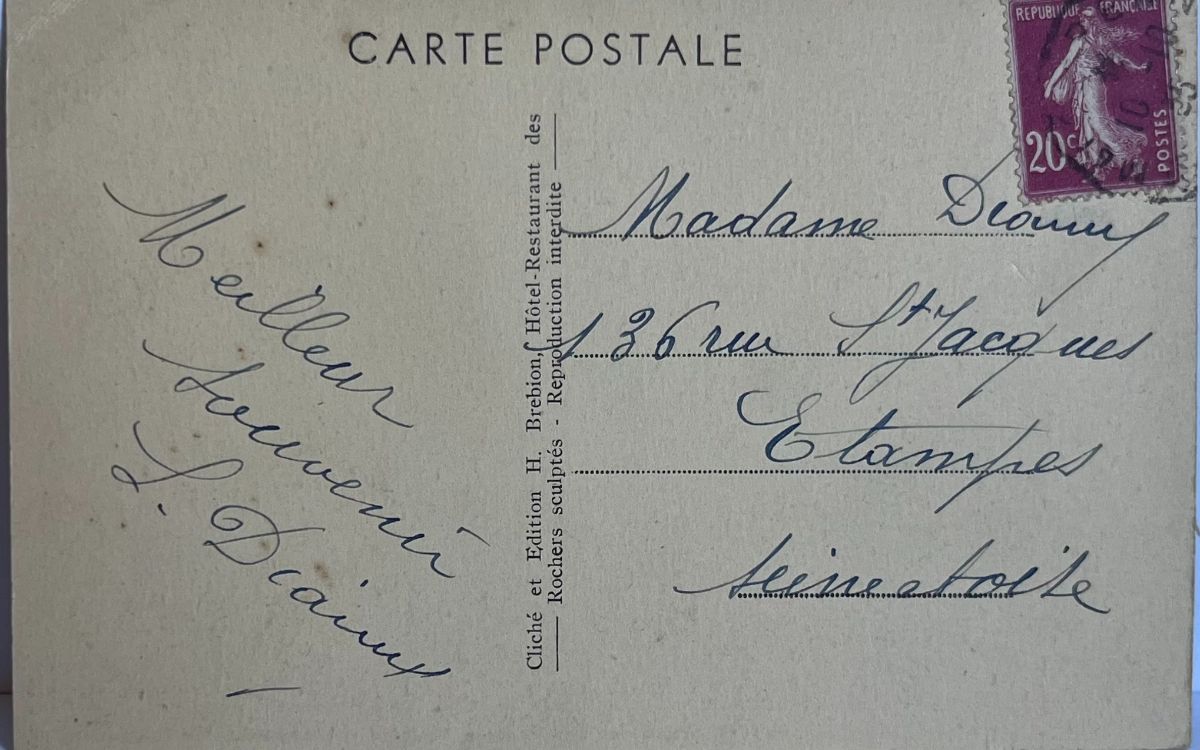 CARTE POSTALE
REPUBLIQUE FRANÇAISE
20c
POSTES
Meilleur
souvenir
Cliché et Edition H. Brebion, Hôtel-Restaurant des
Rochers sculptés - Reproduction interdite
Madame
136 rue St Jacques
Etampes
seine et oise